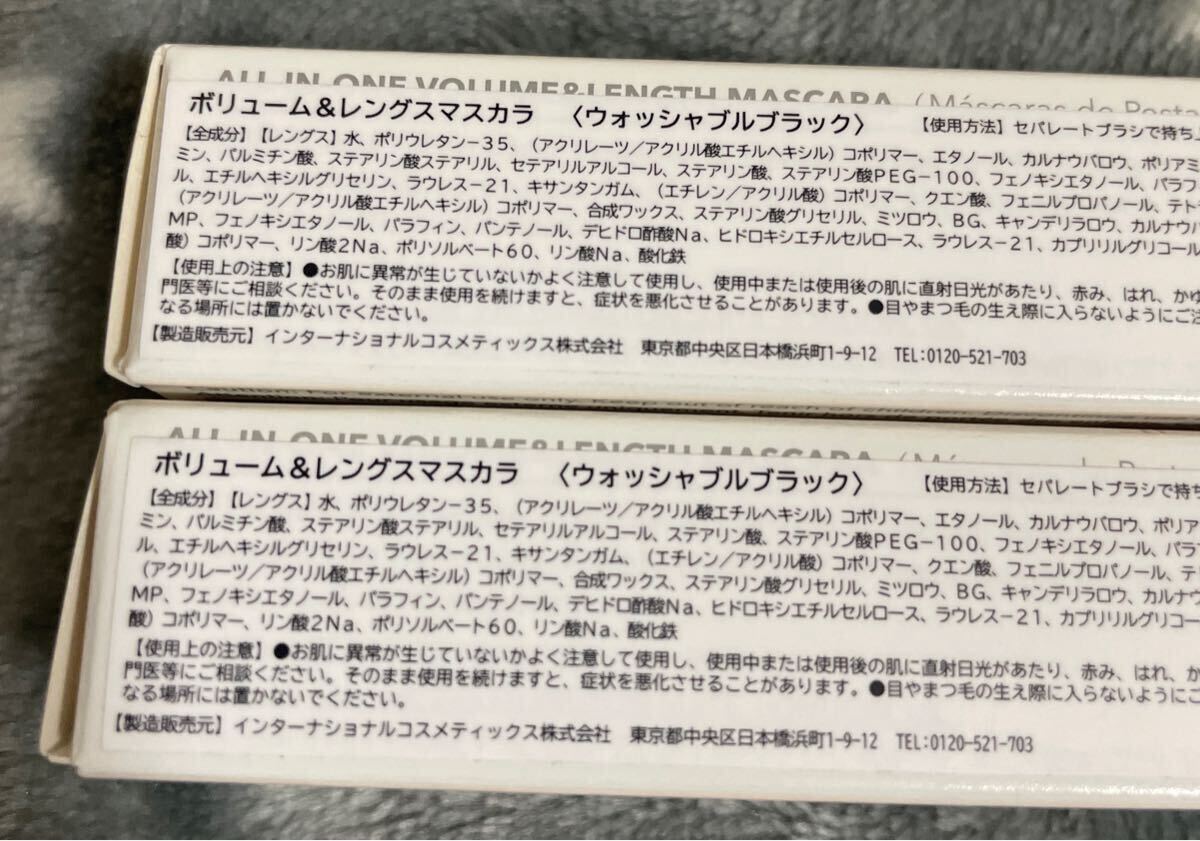 ALL IN ONE VOLUME&LENGTH MASCARA (Máscaras de Pesta
ボリューム&レングスマスカラ 〈ウォッシャブルブラック〉 【使用方法】セパレートブラシで持ち上
【全成分】【レングス】水、ポリウレタン-35、(アクリレーツ/アクリル酸エチルヘキシル)コポリマー、エタノール、カルナウバロウ、ポリアミ
ミン、パルミチン酸、ステアリン酸ステアリル、セテアリルアルコール、ステアリン酸、ステアリン酸PEG-100、フェノキシエタノール、パラフ
ル、エチルヘキシルグリセリン、ラウレス-21、キサンタンガム、(エチレン/アクリル酸)コポリマー、クエン酸、フェニルプロパノール、テト
(アクリレーツ/アクリル酸エチルヘキシル)コポリマー、合成ワックス、ステアリン酸グリセリル、ミツロウ、BG、キャンデリラロウ、カルナウバ
MP、フェノキシエタノール、パラフィン、パンテノール、デヒドロ酢酸Na、ヒドロキシエチルセルロース、ラウレス-21、カプリリルグリコール
酸)コポリマー、リン酸2Na、ポリソルベート60、リン酸Na、酸化鉄
【使用上の注意】●お肌に異常が生じていないかよく注意して使用し、使用中または使用後の肌に直射日光があたり、赤み、はれ、かゆ
門医等にご相談ください。そのまま使用を続けますと、症状を悪化させることがあります。●目やまつ毛の生え際に入らないようにご注
なる場所には置かないでください。
【製造販売元】インターナショナルコスメティックス株式会社 東京都中央区日本橋浜町1-9-12 TEL:0120-521-703
ALL IN ONE VOLUME&LENGTH MASCARA
ボリューム&レングスマスカラ 〈ウォッシャブルブラック〉 【使用方法】セパレートブラシで持ち
【全成分】【レングス】水、ポリウレタン-35、(アクリレーツ/アクリル酸エチルヘキシル)コポリマー、エタノール、カルナウバロウ、ポリア
ミン、パルミチン酸、ステアリン酸ステアリル、セテアリルアルコール、ステアリン酸、ステアリン酸PEG-100、フェノキシエタノール、パラ
ル、エチルヘキシルグリセリン、ラウレス-21、キサンタンガム、(エチレン/アクリル酸)コポリマー、クエン酸、フェニルプロパノール、テ
(アクリレーツ/アクリル酸エチルヘキシル)コポリマー、合成ワックス、ステアリン酸グリセリル、ミツロウ、BG、キャンデリラロウ、カルナウ
MP、フェノキシエタノール、パラフィン、パンテノール、デヒドロ酢酸Na、ヒドロキシエチルセルロース、ラウレス-21、カプリリルグリコー
酸)コポリマー、リン酸2Na、ポリソルベート60、リン酸Na、酸化鉄
【使用上の注意】●お肌に異常が生じていないかよく注意して使用し、使用中または使用後の肌に直射日光があたり、赤み、はれ、か
門医等にご相談ください。そのまま使用を続けますと、症状を悪化させることがあります。●目やまつ毛の生え際に入らないようにご
なる場所には置かないでください。
【製造販売元】インターナショナルコスメティックス株式会社 東京都中央区日本橋浜町1-9-12 TEL:0120-521-703